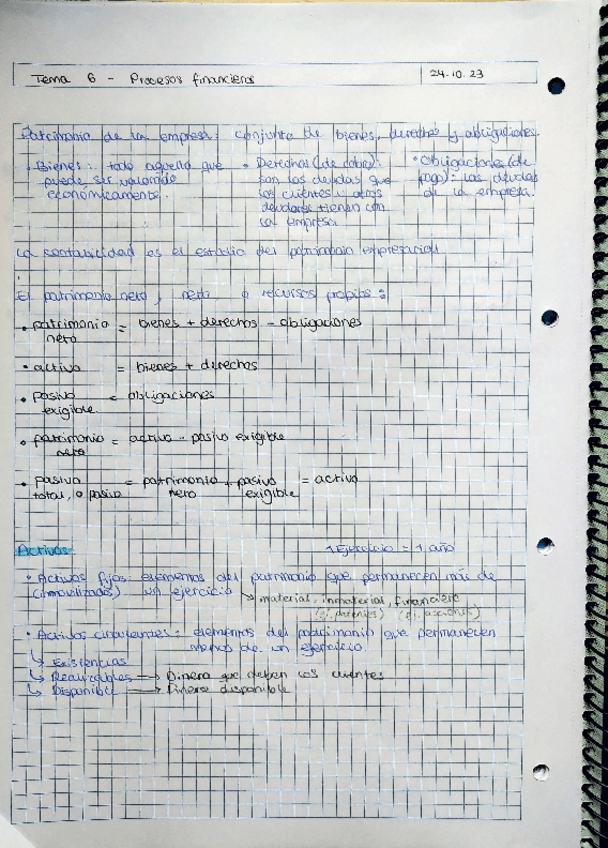 Tema 6 - Procesos financieros
24.10.23
Patrimonio de la empresa: conjunto de bienes, derechos y obligaciones.
• Bienes: todo aquello que
puede ser valorado
económicamente.
• Derechos (de cobro):
son las deudas que
los clientes u otros
deudores tienen con
la empresa.
• Obligaciones (de
pago): las deudas
de la empresa.
La contabilidad es el estudio del patrimonio empresarial
El patrimonio neto, neto o recursos propios:
• patrimonio = bienes + derechos - obligaciones
neto
• activo = bienes + derechos
• pasivo = obligaciones
exigible
• patrimonio = activo - pasivo exigible
neto
• pasivo = patrimonio + pasivo = activo
total, o pasivo neto exigible
Activos:
1 Ejercicio = 1 año
• Activos fijos: elementos del patrimonio que permanecen más de
(inmovilizados) un ejercicio → material, inmaterial, financiero
(ej. patentes) (ej. acciones)
• Activos circulantes: elementos del patrimonio que permanecen
menos de un ejercicio.
↳ Existencias
↳ Realizables → Dinero que deben los clientes
↳ Disponible → Dinero disponible